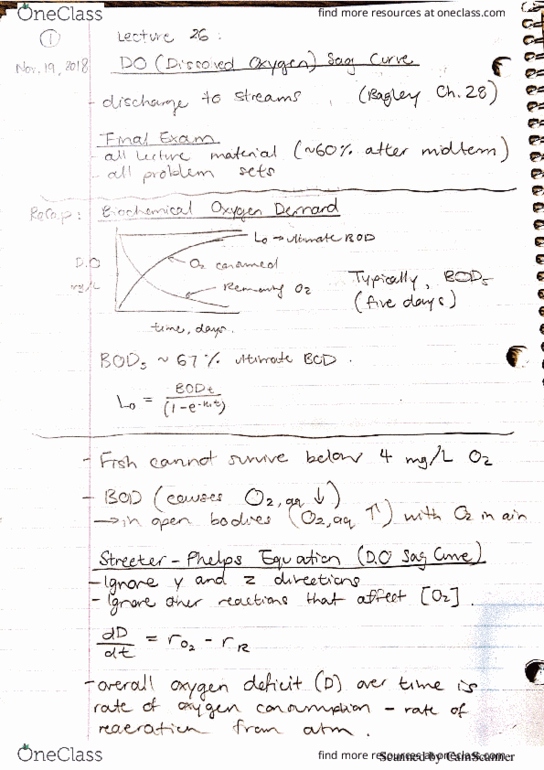 OneClass
find more resources at oneclass.com
① Lecture 26:
Nov. 19, 2018 DO (Dissolved Oxygen) Sag Curve
- discharge to streams (Bagley Ch. 28)
Final Exam
- all lecture material (~60% after midterm)
- all problem sets
Recap: Biochemical Oxygen Demand
L₀ → ultimate BOD
D.O
mg/L
O₂ consumed
Remaining O₂
Typically, BOD₅
(five days)
time, days.
BOD₅ ~ 67% ultimate BOD.
L₀ = BODt / (1-e^-k₁t)
- Fish cannot survive below 4 mg/L O₂
- BOD (causes O₂,aq ↓)
→ in open bodies (O₂,aq ↑) with O₂ in air
Streeter-Phelps Equation (D.O Sag Curve)
- Ignore y and z directions
- Ignore other reactions that affect [O₂].
dD/dt = rO₂ - rR
- overall oxygen deficit (D) over time is
rate of oxygen consumption - rate of
reaeration from atm.
OneClass
find more resources at oneclass.com
Scanned by CamScanner